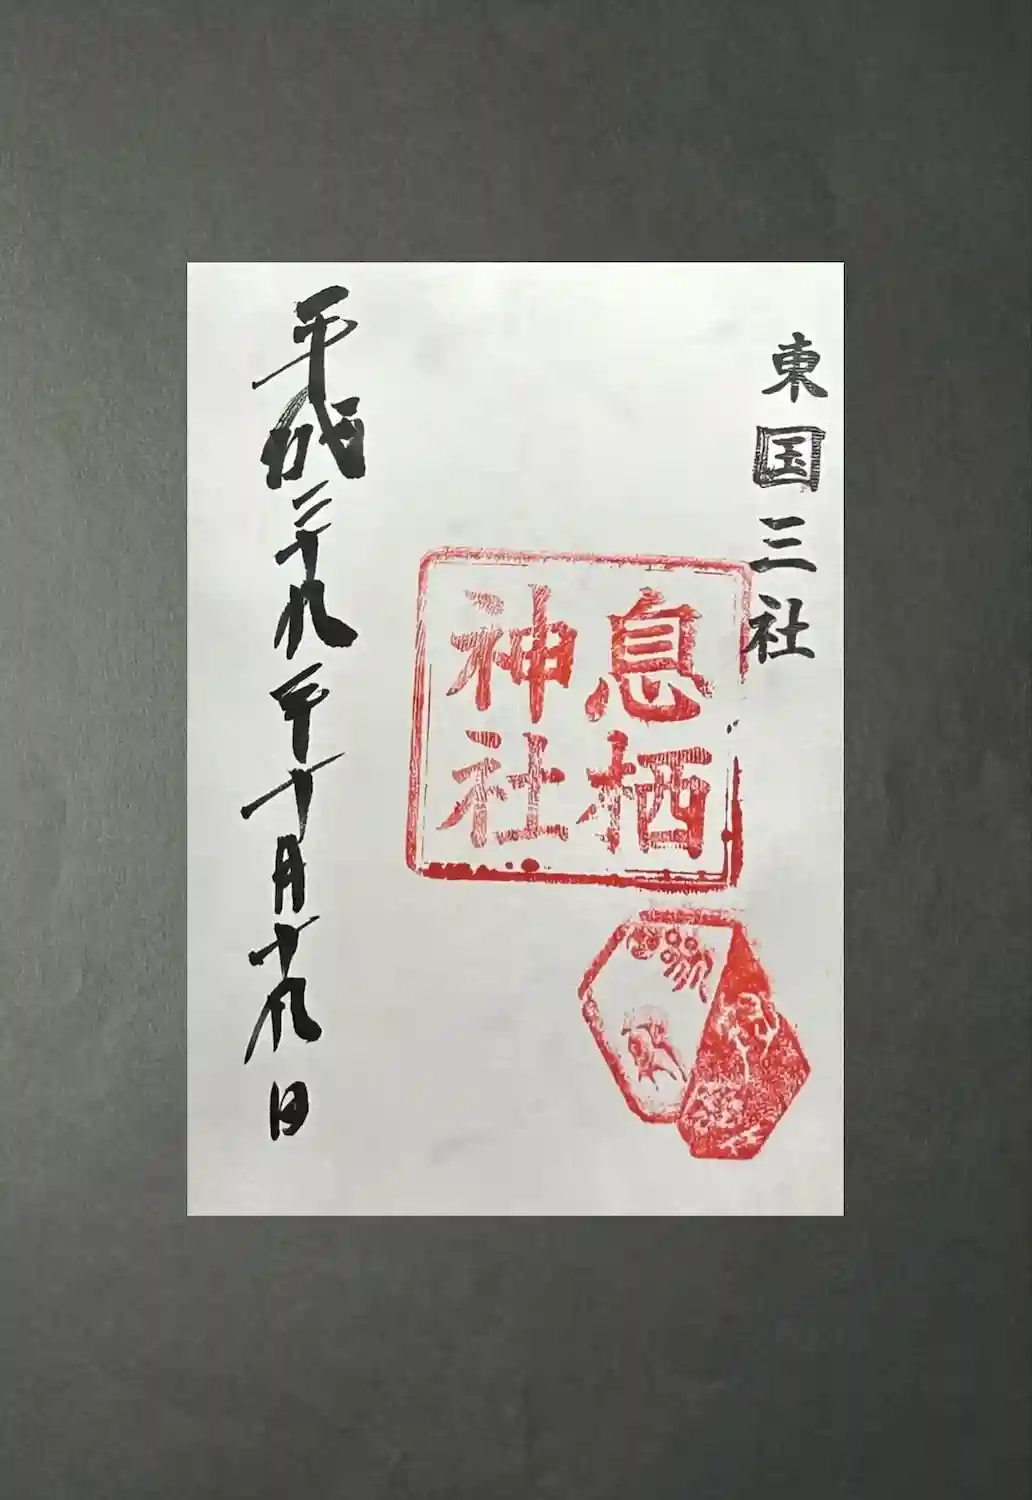 東国三社
息栖
神社
平成二十九年十月十九日